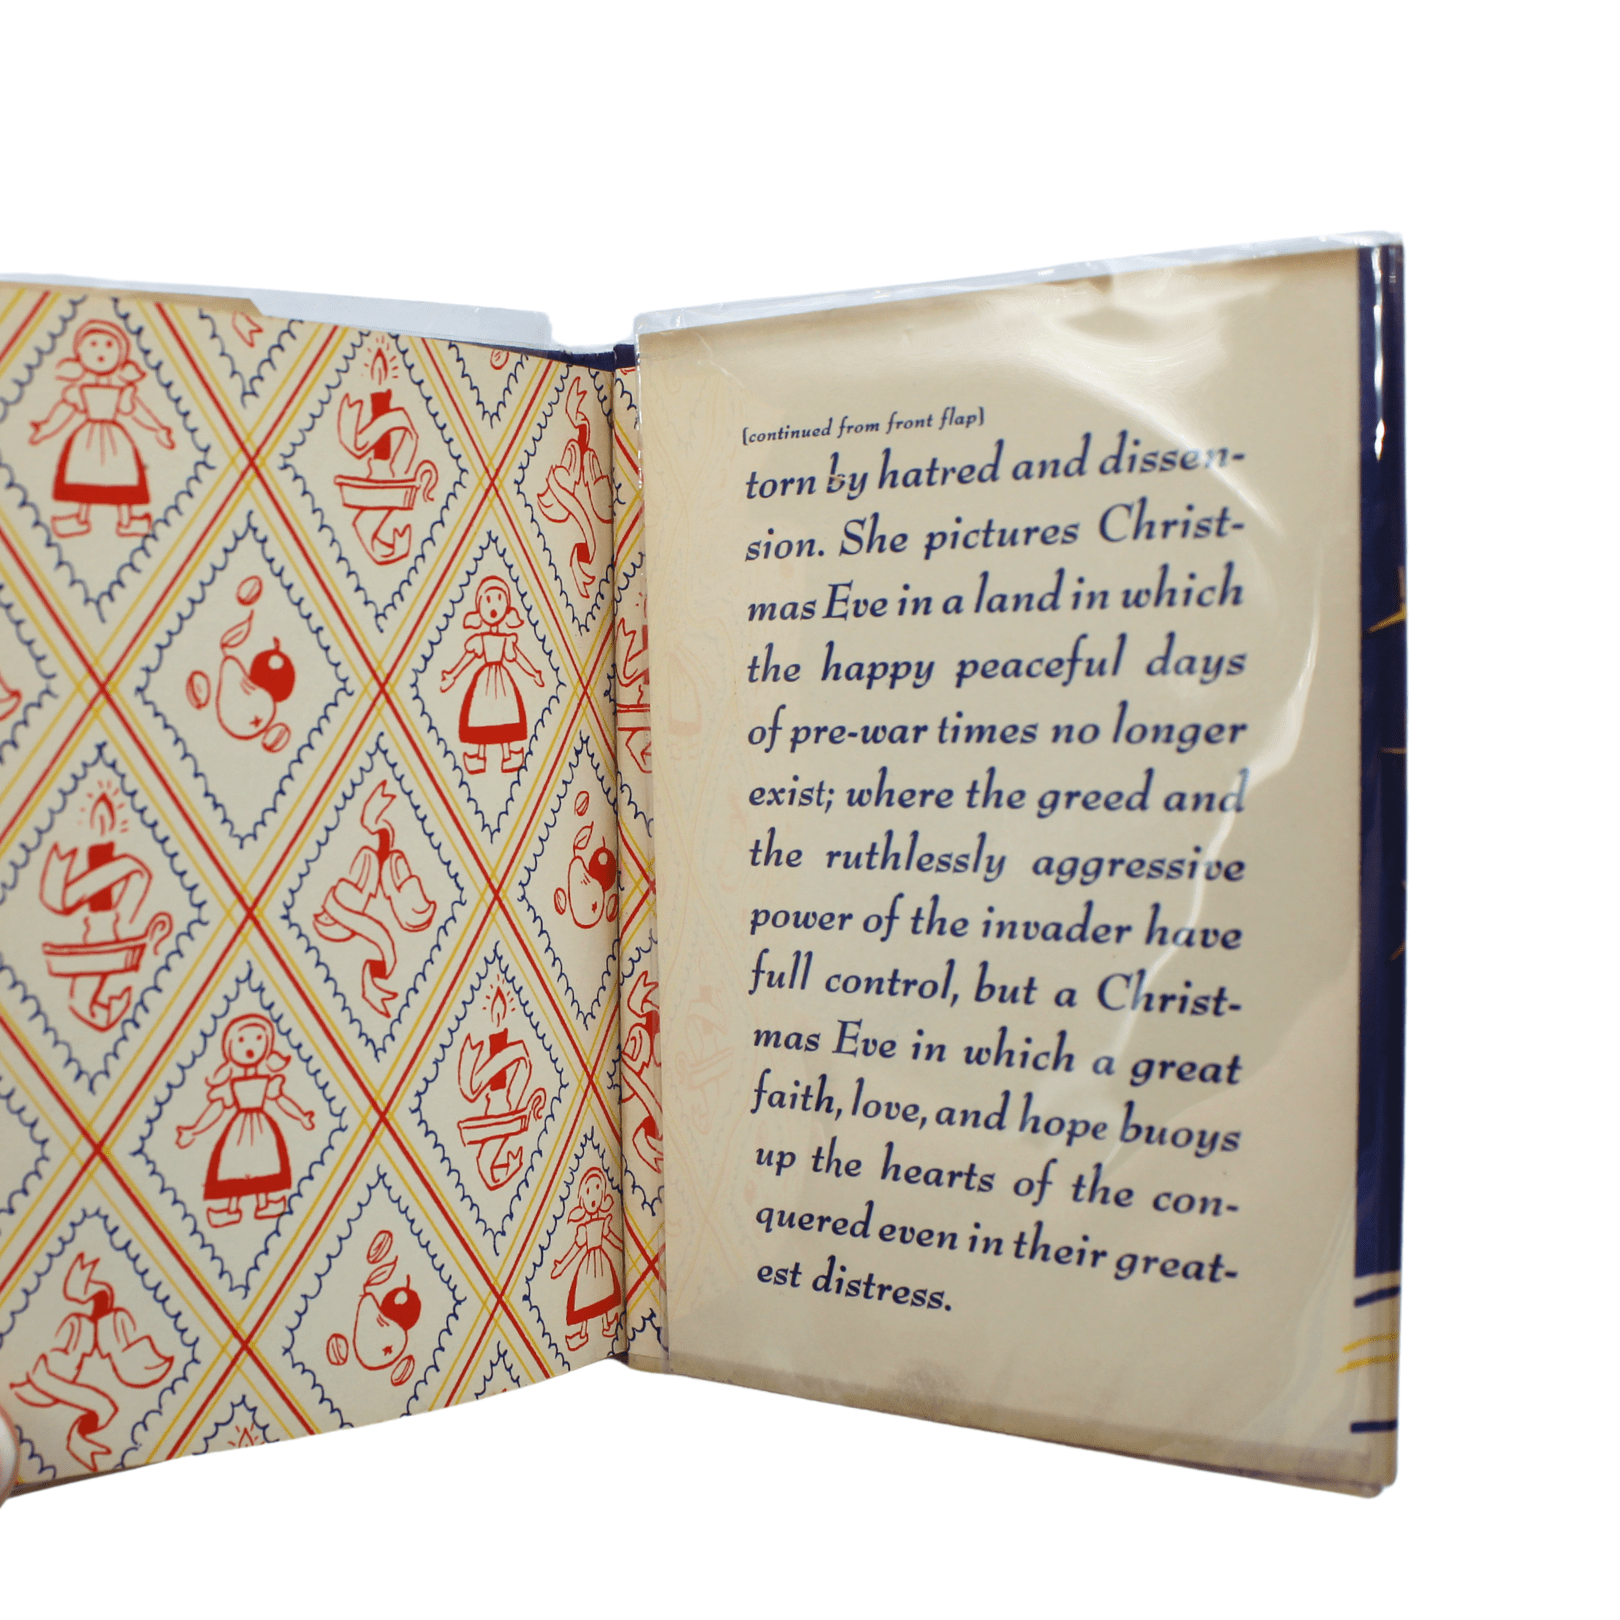 (continued from front flap)
torn by hatred and dissen-
sion. She pictures Christ-
mas Eve in a land in which
the happy peaceful days
of pre-war times no longer
exist; where the greed and
the ruthlessly aggressive
power of the invader have
full control, but a Christ-
mas Eve in which a great
faith, love, and hope buoys
up the hearts of the con-
quered even in their great-
est distress.